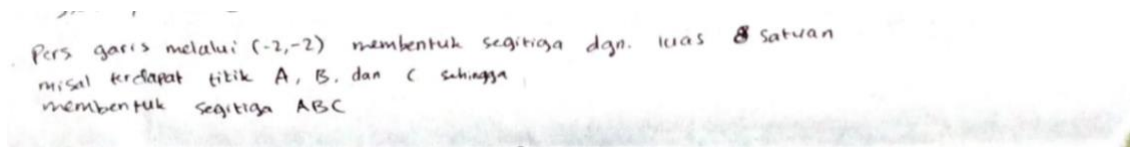 Pers garis melalui (-2,-2) membentuk segitiga dgn. luas 8 satuan
misal terdapat titik A, B, dan C sehingga
membentuk segitiga ABC